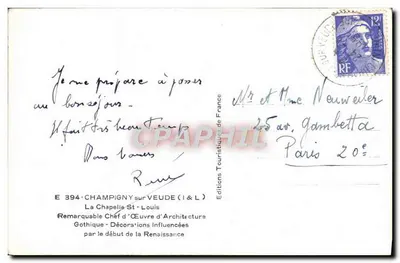 12F
RF
Je me prépare à passer
un bon séjour.
Il fait très beau temps
Bons baisers
René
Mr et Mme Neuweiler
205 av. Gambetta
Paris 20e
CPAPHIL
Editions Touristiques de France
E 394 - CHAMPIGNY sur VEUDE (I & L)
La Chapelle St-Louis
Remarquable Chef d'Œuvre d'Architecture
Gothique - Décorations Influencées
par le début de la Renaissance